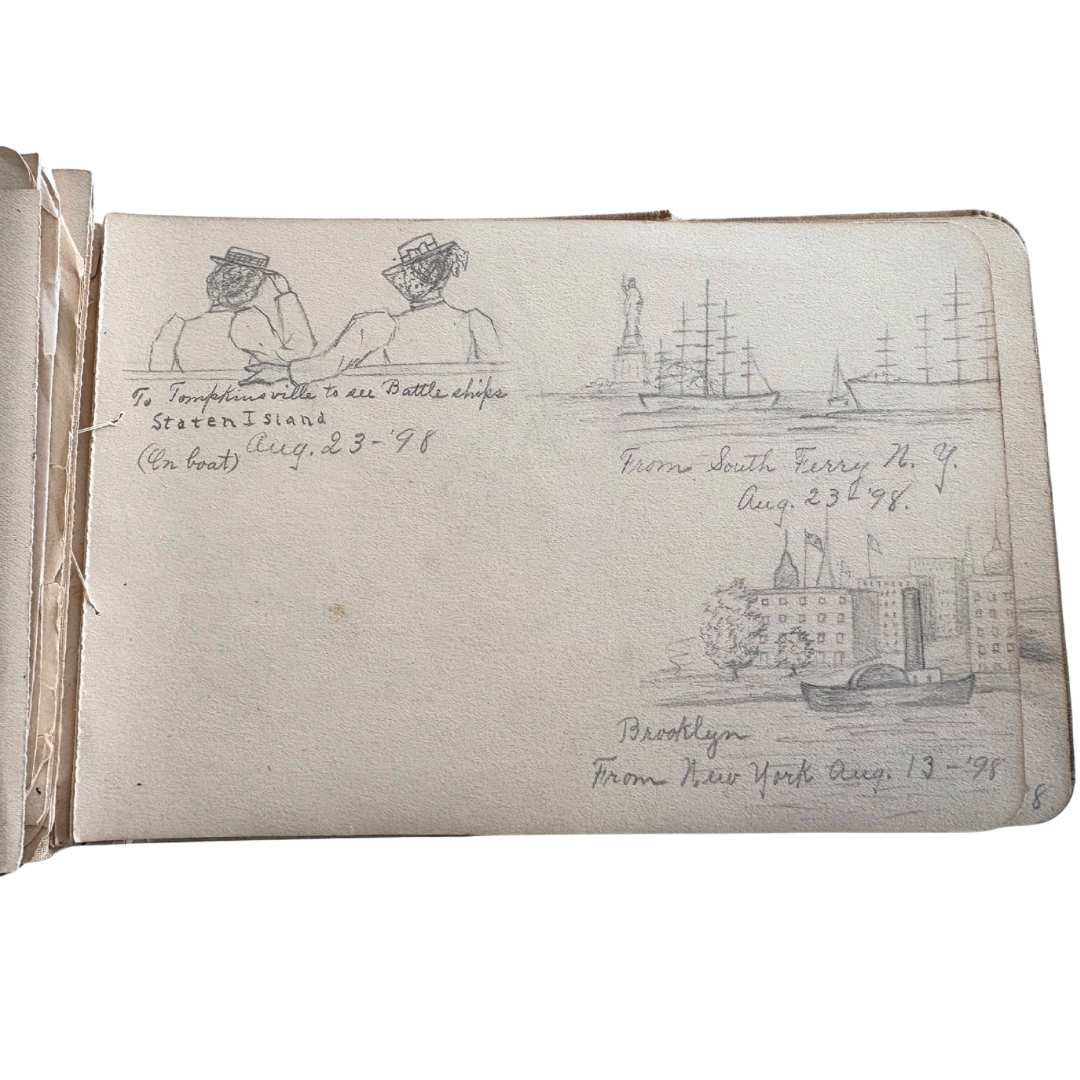 To Tompkinsville to see Battle ships
Staten Island
(On boat) Aug. 23-'98
From South Ferry N. Y.
Aug. 23-'98.
Brooklyn
From New York Aug. 13-'98
'8